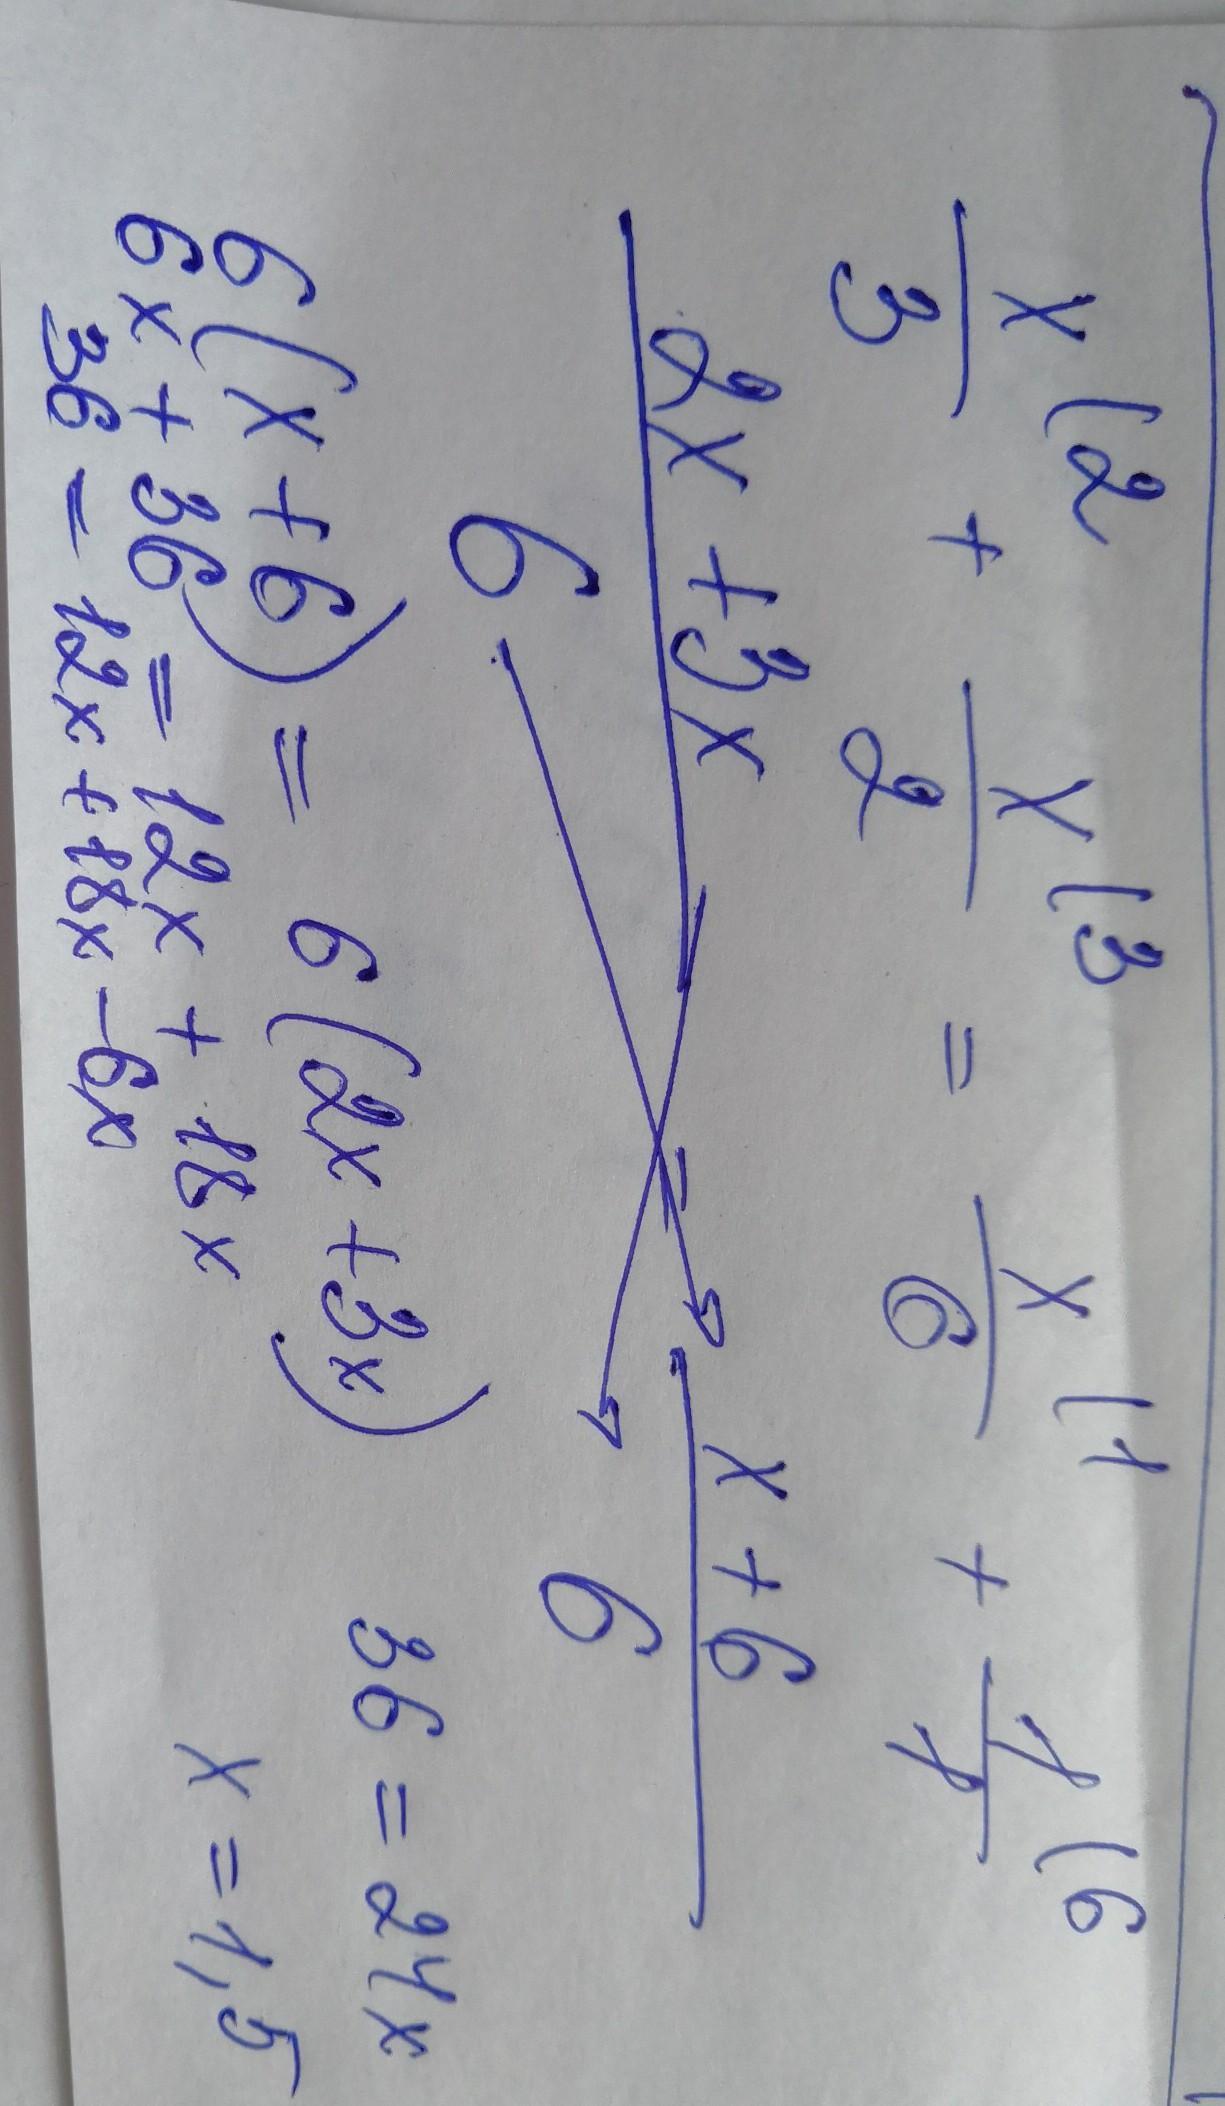 x(2 x(3 x(1 1(6
— + — = — + —
3 2 6 1
2x + 3x = x + 6
6 6
6(x + 6) = 6(2x + 3x)
6x + 36 = 12x + 18x
36 = 12x + 18x - 6x
36 = 24x
x = 1,5